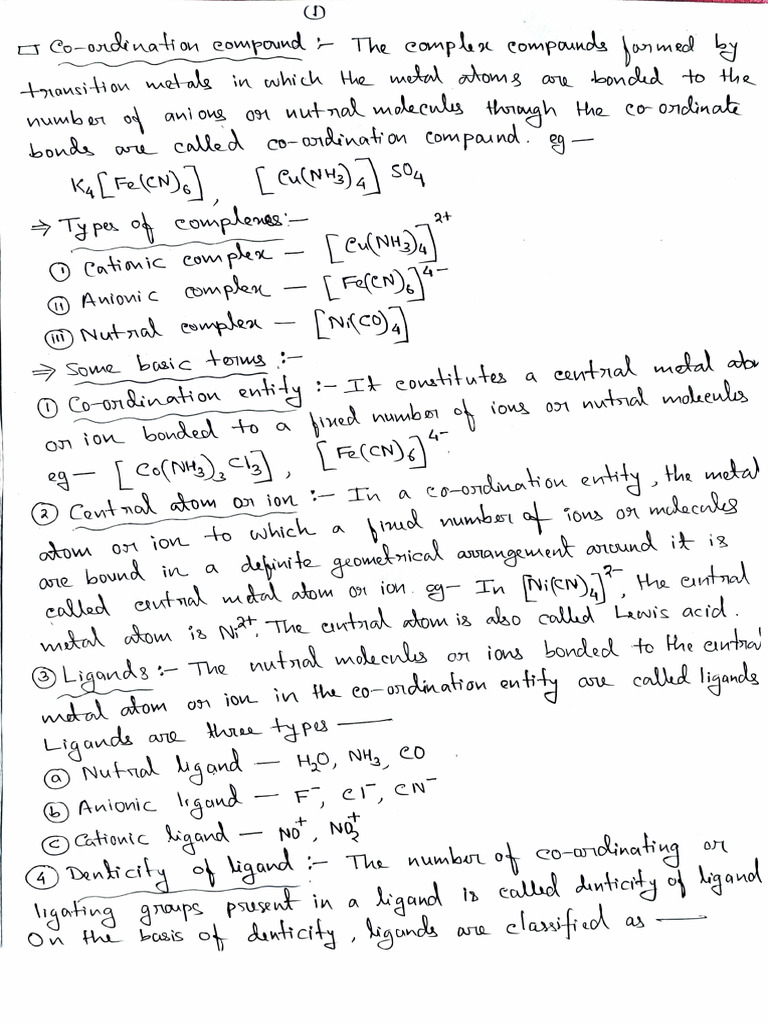 ①
□ Co-ordination compound :- The complex compounds formed by
transition metals in which the metal atoms are bonded to the
number of anions or nutral molecules through the co-ordinate
bonds are called co-ordination compound. eg —
K₄[Fe(CN)₆], [Cu(NH3)₄] SO₄
⇒ Types of complexes:-
ⓘ Cationic complex — [Cu(NH3)₄]²⁺
ⓘⓘ Anionic complex — [Fe(CN)₆]⁴⁻
ⓘⓘⓘ Nutral complex — [Ni(CO)₄]
⇒ Some basic terms :-
① Co-ordination entity :- It constitutes a central metal
or ion bonded to a fixed number of ions or nutral molecules
eg — [Co(NH3)₃Cl₃], [Fe(CN)₆]⁴⁻.
② Central atom or ion :- In a co-ordination entity, the metal
atom or ion to which a fixed number of ions or molecules
are bound in a definite geometrical arrangement around it is
called central metal atom or ion. eg- In [Ni(CN)₄]²⁻, the central
metal atom is Ni²⁺. The central atom is also called Lewis acid.
③ Ligands :- The nutral molecules or ions bonded to the central
metal atom or ion in the co-ordination entity are called ligands
Ligands are three types —
ⓐ Nutral ligand — H₂O, NH₃, CO
ⓑ Anionic ligand — F⁻, Cl⁻, CN⁻
ⓒ Cationic ligand — NO⁺, NO₂⁺
④ Denticity of ligand :- The number of co-ordinating or
ligating groups present in a ligand is called denticity of ligand
On the basis of denticity, ligands are classified as —